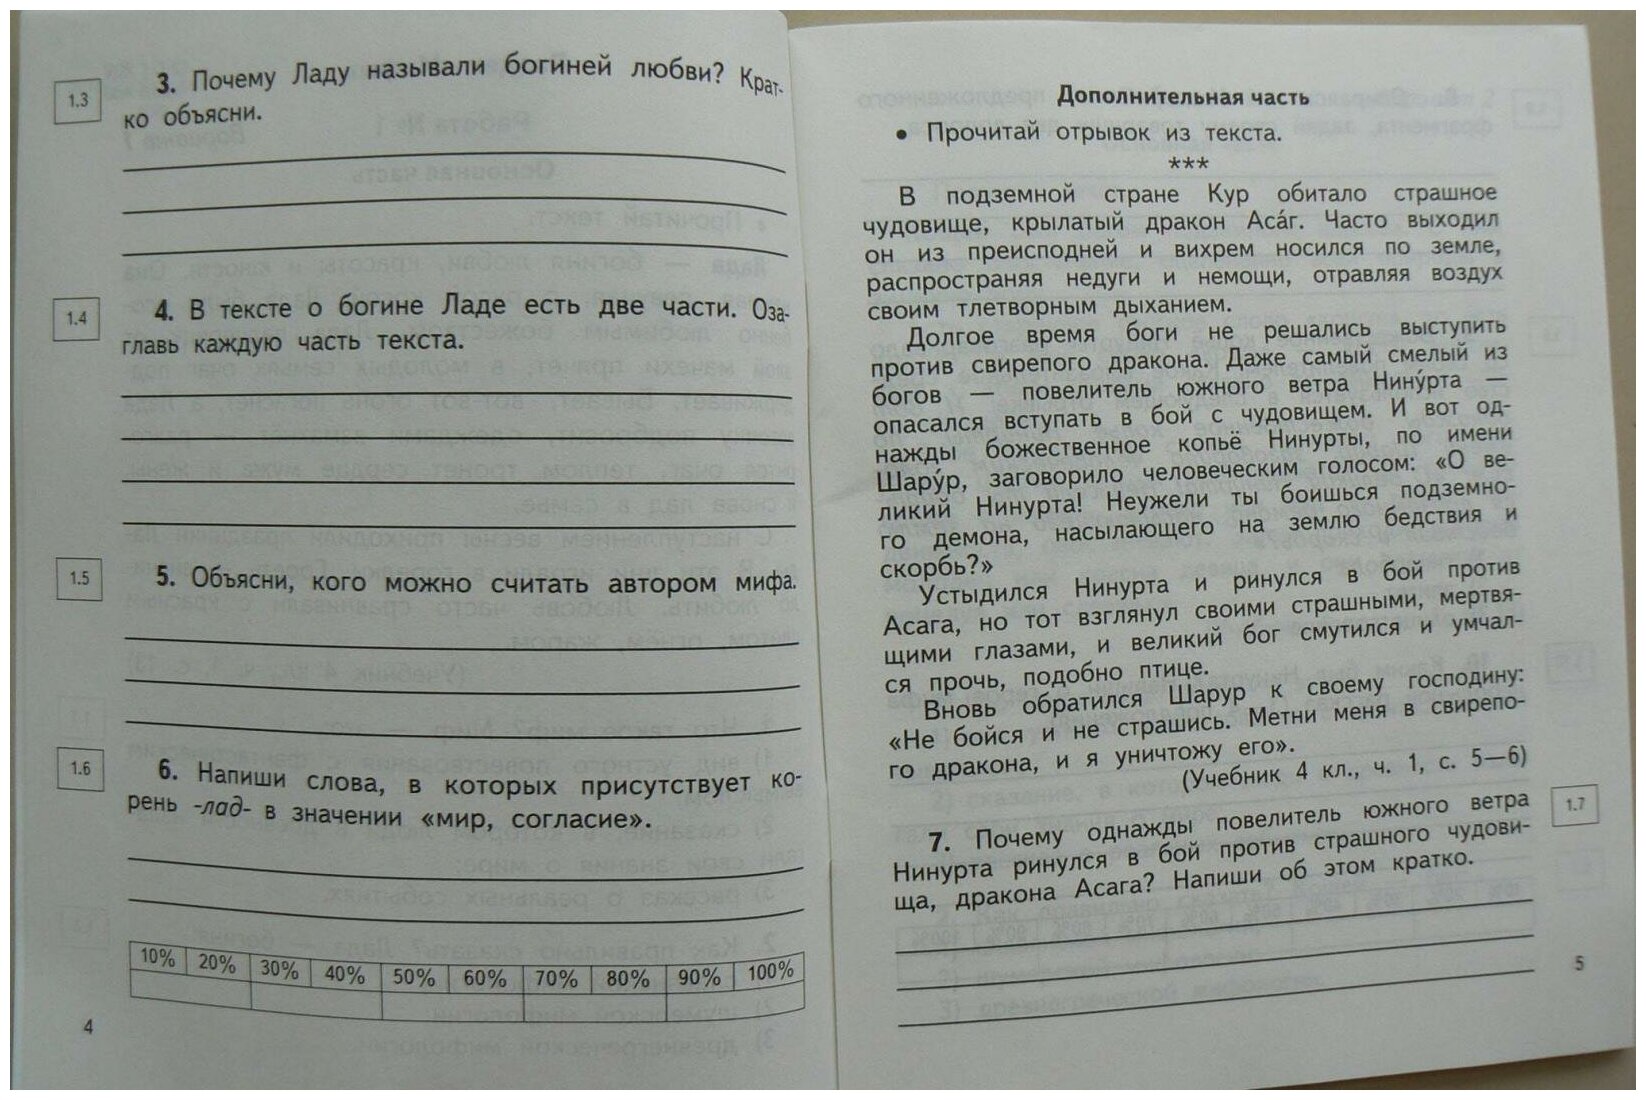 1.3
3. Почему Ладу называли богиней любви? Крат-
ко объясни.
1.4
4. В тексте о богине Ладе есть две части. Оза-
главь каждую часть текста.
1.5
5. Объясни, кого можно считать автором мифа.
1.6
6. Напиши слова, в которых присутствует ко-
рень -лад- в значении «мир, согласие».
10% 20% 30% 40% 50% 60% 70% 80% 90% 100%
4
Дополнительная часть
• Прочитай отрывок из текста.
***
В подземной стране Кур обитало страшное
чудовище, крылатый дракон Аса́г. Часто выходил
он из преисподней и вихрем носился по земле,
распространяя недуги и немощи, отравляя воздух
своим тлетворным дыханием.
Долгое время боги не решались выступить
против свирепого дракона. Даже самый смелый из
богов — повелитель южного ветра Нину́рта —
опасался вступать в бой с чудовищем. И вот од-
нажды божественное копьё Нинурты, по имени
Шару́р, заговорило человеческим голосом: «О ве-
ликий Нинурта! Неужели ты боишься подземно-
го демона, насылающего на землю бедствия и
скорбь?»
Устыдился Нинурта и ринулся в бой против
Асага, но тот взглянул своими страшными, мертвя-
щими глазами, и великий бог смутился и умчал-
ся прочь, подобно птице.
Вновь обратился Шарур к своему господину:
«Не бойся и не страшись. Метни меня в свирепо-
го дракона, и я уничтожу его».
(Учебник 4 кл., ч. 1, с. 5—6)
1.7
7. Почему однажды повелитель южного ветра
Нинурта ринулся в бой против страшного чудови-
ща, дракона Асага? Напиши об этом кратко.
5